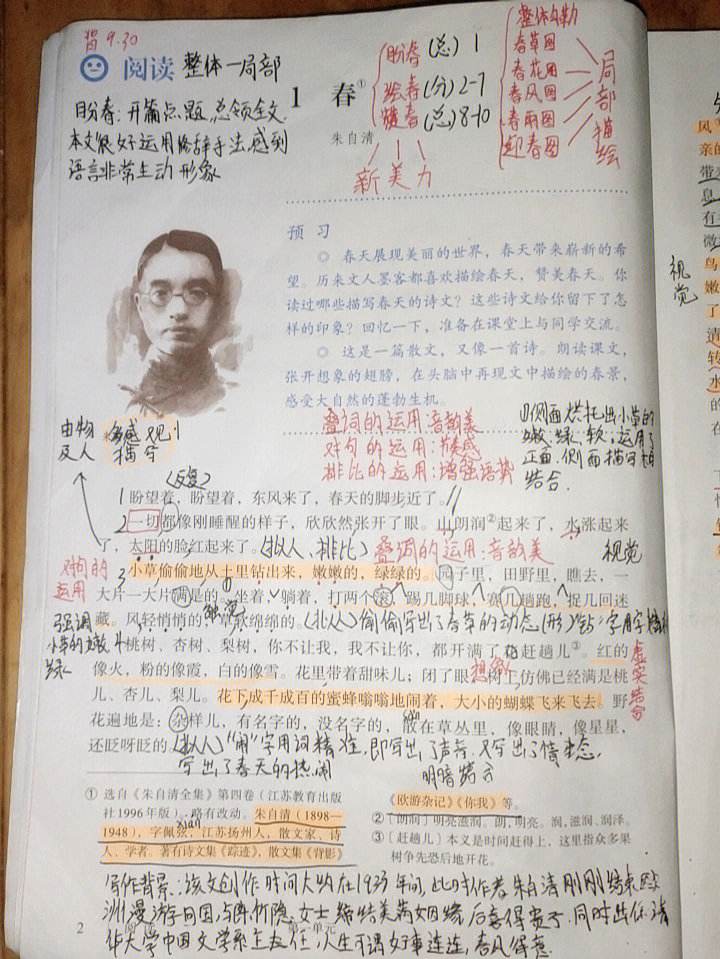 背 9.30
阅读 整体—局部
1 春①
朱自清
盼春(总) 1
绘春(分) 2-7
赞春(总) 8-10
新 美 力
整体勾勒
春草图
春花图
春风图
春雨图
迎春图
局部描绘
盼春:开篇点题,总领全文.
本文很好运用修辞手法,感到
语言非常生动形象
预习
◎ 春天展现美丽的世界,春天带来崭新的希
望。历来文人墨客都喜欢描绘春天,赞美春天。你
读过哪些描写春天的诗文?这些诗文给你留下了怎
样的印象?回忆一下,准备在课堂上与同学交流。
◎ 这是一篇散文,又像一首诗。朗读课文,
张开想象的翅膀,在头脑中再现文中描绘的春景,
感受大自然的蓬勃生机。
视觉
由物
及人
多感观
描写
叠词的运用:音韵美
对句的运用:节奏感
排比的运用:增强语势
侧面烘托出小草的
嫩,绿,软;运用了
正面,侧面描写相
结合.
(反复)
1 盼望着,盼望着,东风来了,春天的脚步近了。
2 一切都像刚睡醒的样子,欣欣然张开了眼。山朗润②起来了,水涨起来
了,太阳的脸红起来了。(拟人、排比) 叠词的运用:音韵美 视觉
对句的
运用
3 小草偷偷地从土里钻出来,嫩嫩的,绿绿的。园子里,田野里,瞧去,一
大片一大片满是的。坐着,躺着,打两个滚,踢几脚球,赛几趟跑,捉几回迷
藏。风轻悄悄的,草软绵绵的。(拟人) 偷偷写出了春草的动态(形) 钻:字用字精准
触觉
强调
小草的嫩
绿
4 桃树、杏树、梨树,你不让我,我不让你,都开满了花赶趟儿③。红的
像火,粉的像霞,白的像雪。花里带着甜味儿;闭了眼,树上仿佛已经满是桃
想象
虚实结合
儿、杏儿、梨儿。花下成千成百的蜜蜂嗡嗡地闹着,大小的蝴蝶飞来飞去。野
花遍地是:杂样儿,有名字的,没名字的,散在草丛里,像眼睛,像星星,
还眨呀眨的。(拟人) “闹”字用词精准,即写出了声音,又写出了情态.
写出了春天的热闹
明暗结合
① 选自《朱自清全集》第四卷(江苏教育出版
社1996年版),略有改动。朱自清(1898—
1948),字佩弦,江苏扬州人,散文家、诗
xián
人、学者。著有诗文集《踪迹》,散文集《背影》
《欧游杂记》《你我》等。
②〔朗润〕明亮滋润。朗,明亮。润,滋润、润泽。
③〔赶趟儿〕本义是时间赶得上,这里指众多果
树争先恐后地开花。
写作背景:该文创作时间大约在1933年间,此时作者朱自清刚刚结束欧
洲漫游回国,与陈竹隐女士缔结美满姻缘,后喜得贵子,同时出任清
华大学中国文学系主任,人生可谓好事连连,春风得意.
2 阅读 第一单元